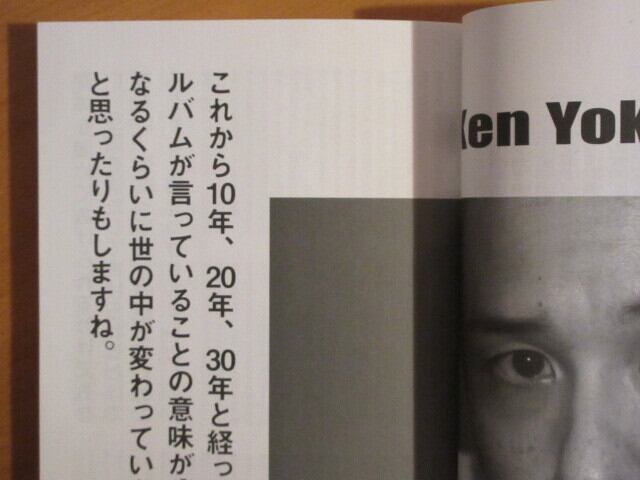 これから10年、20年、30年と経っ
ルバムが言っていることの意味が
なるくらいに世の中が変わってい
と思ったりもしますね。
Ken Yok